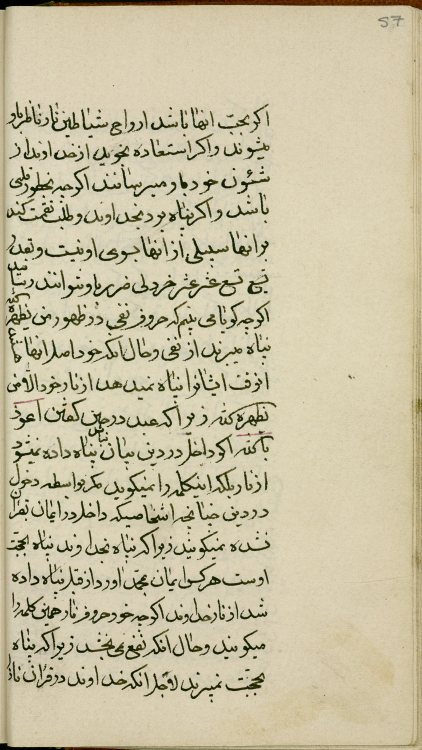 57
اکر بجنب انها باشد ارواح شیاطین نار ناظر باو
میشوند و اکر استعاذه بجوید از خداوند از
شئون خود باو میرسانند اکر چه بخطور قلبی
باشد و اکر پناه برد بخداوند و طلب نقمت کند
بر انها سبیلی از انها بسوی او نیست و بقدر
تسع تسع عشر عشر خردلی ضرر باو نتوانند رسانید
اکر چه کویا می بینم که حروف نفی در ظهور من یظهره الله
پناه میبرند از نفی و حال انکه خود اصل انها
انوقت ایشانرا پناه نمیدهد از نار خود الا من
یظهره الله زیرا که عبد در حین کفتن اعوذ
بالله اکر داخل در دین بیان نباشد پناه داده نمیشود
از نار بلکه این کلمه را نمیکوید مکر بواسطه دخول
در دین چنانچه اشخاصیکه داخل در ایمان بقران
نشده نمیکویند زیرا که پناه بخداوند پناه بحجت
اوست هر کس ایمان بمحمد اورد از قبل پناه داده
شد از نار خداوند اکر چه خود حروف نار همین کلمه را
میکویند و حال انکه نفع نمی بخشد زیرا که پناه
بحجت نمیبرند لاجل انکه خداوند در قران نازل